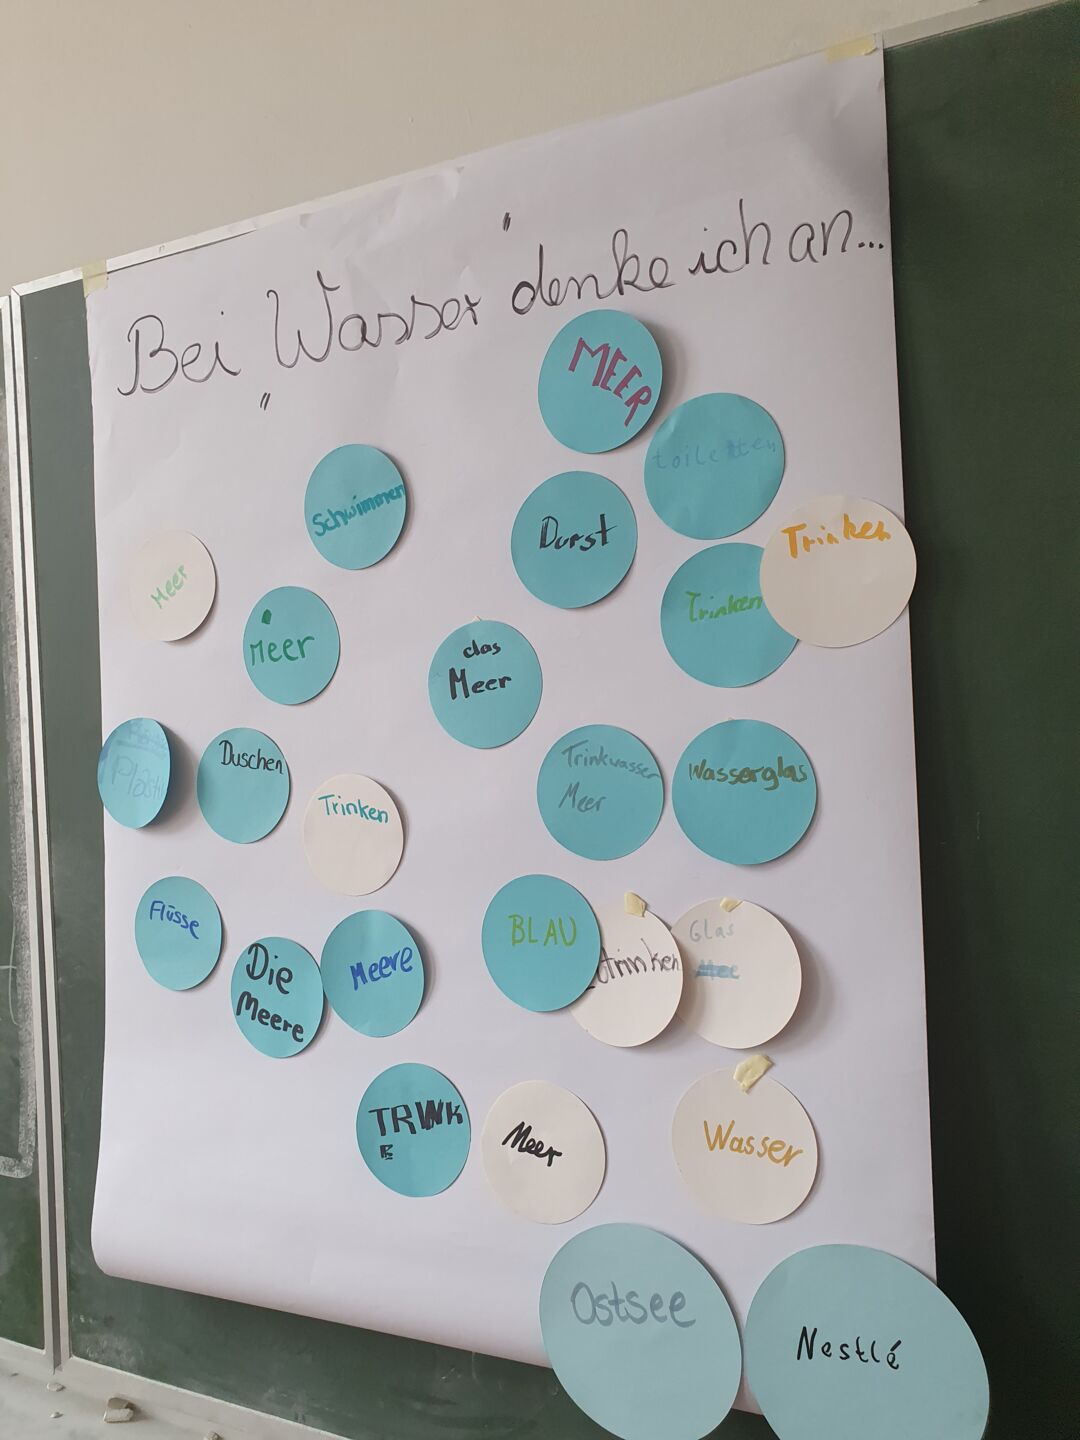 Bei "Wasser" denke ich an...
MEER
toiletten
Schwimmen
Durst
Trinken
Trinken
Meer
Meer
das
Meer
Duschen
Trinken
Trinkwasser
Meer
Wasserglas
Flüsse
Die
Meere
Meere
BLAU
trinken
Glas
Meer
Wasser
Ostsee
Nestlé